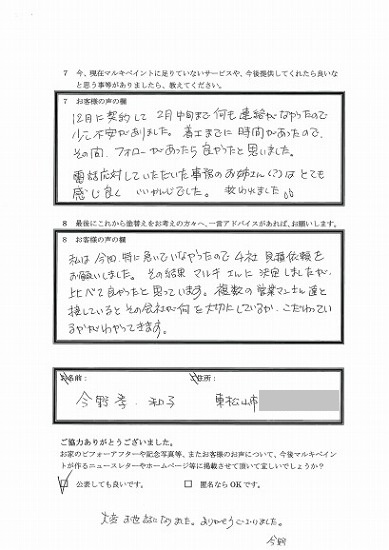 7 今、現在マルキペイントに足りていないサービスや、今後提供してくれたら良いな
と思う事等がありましたら、教えてください。
7 お客様の声の欄
12月に契約して 2月中旬まで何も連絡がなかったので
少し不安がありました。着工までに時間があったので、
その間、フォローがあったら良かったと思いました。
電話応対していただいた事務のお姉さん(?)は とても
感じ良く いいかんじでした。救われました
8 最後にこれから塗替えをお考えの方々へ、一言アドバイスがあれば、お願いします。
8 お客様の声の欄
私は今回、特に急いでいなかったので 4社 見積依頼を
お願いしました。その結果 マルキさんに決定しましたが、
比べて良かったと思っています。複数の営業マンさん達と
接していると その会社が何を大切にしているか、こだわってい
るかがわかってきます。
お名前:
ご住所:
今野孝・和子
東松山市
ご協力ありがとうございました。
お家のビフォーアフターや記念写真等、またお客様の声について、今後マルキペイン
トが作るニュースレターやホームページ等に掲載させて頂いて宜しいでしょうか?
公表しても良いです。
匿名ならOKです。
大変お世話になりました。ありがとうございました。
今野